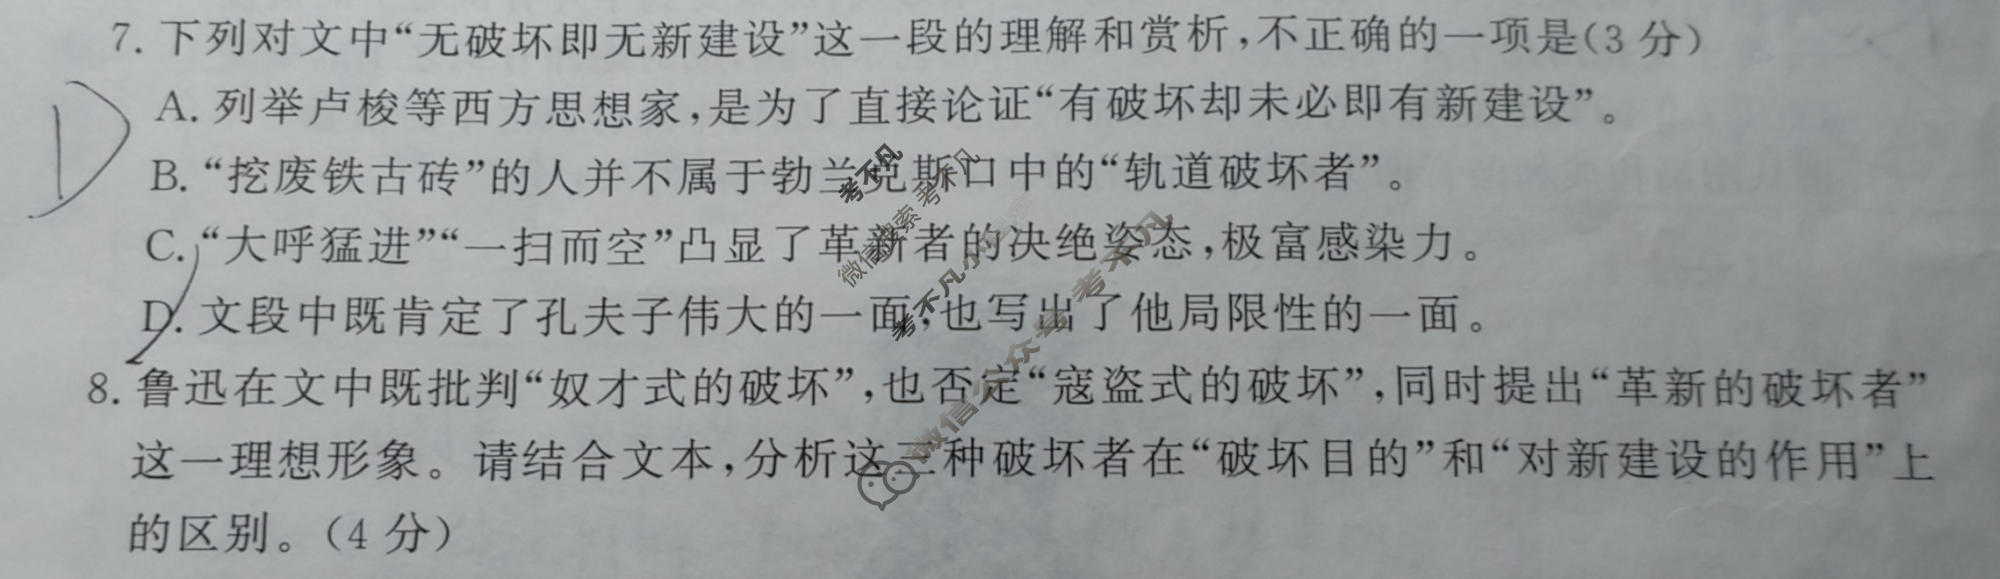 7. 下列对文中“无破坏即无新建设”这一段的理解和赏析,不正确的一项是(3 分)
D
A. 列举卢梭等西方思想家,是为了直接论证“有破坏却未必即有新建设”。
B. “挖废铁古砖”的人并不属于勃兰克斯口中的“轨道破坏者”。
C. “大呼猛进”“一扫而空”凸显了革新者的决绝姿态,极富感染力。
D. 文段中既肯定了孔夫子伟大的一面,也写出了他局限性的一面。
8. 鲁迅在文中既批判“奴才式的破坏”,也否定“寇盗式的破坏”,同时提出“革新的破坏者”
这一理想形象。请结合文本,分析这三种破坏者在“破坏目的”和“对新建设的作用”上
的区别。(4 分)
考不凡
微信搜索 考不凡
考不凡小程序
微信公众号 考不凡